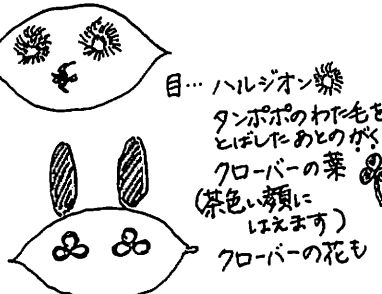 目… ハルジオン
タンポポのわた毛を
とばしたあとのがく
クローバーの葉
(茶色い顔に
はえます)
クローバーの花も